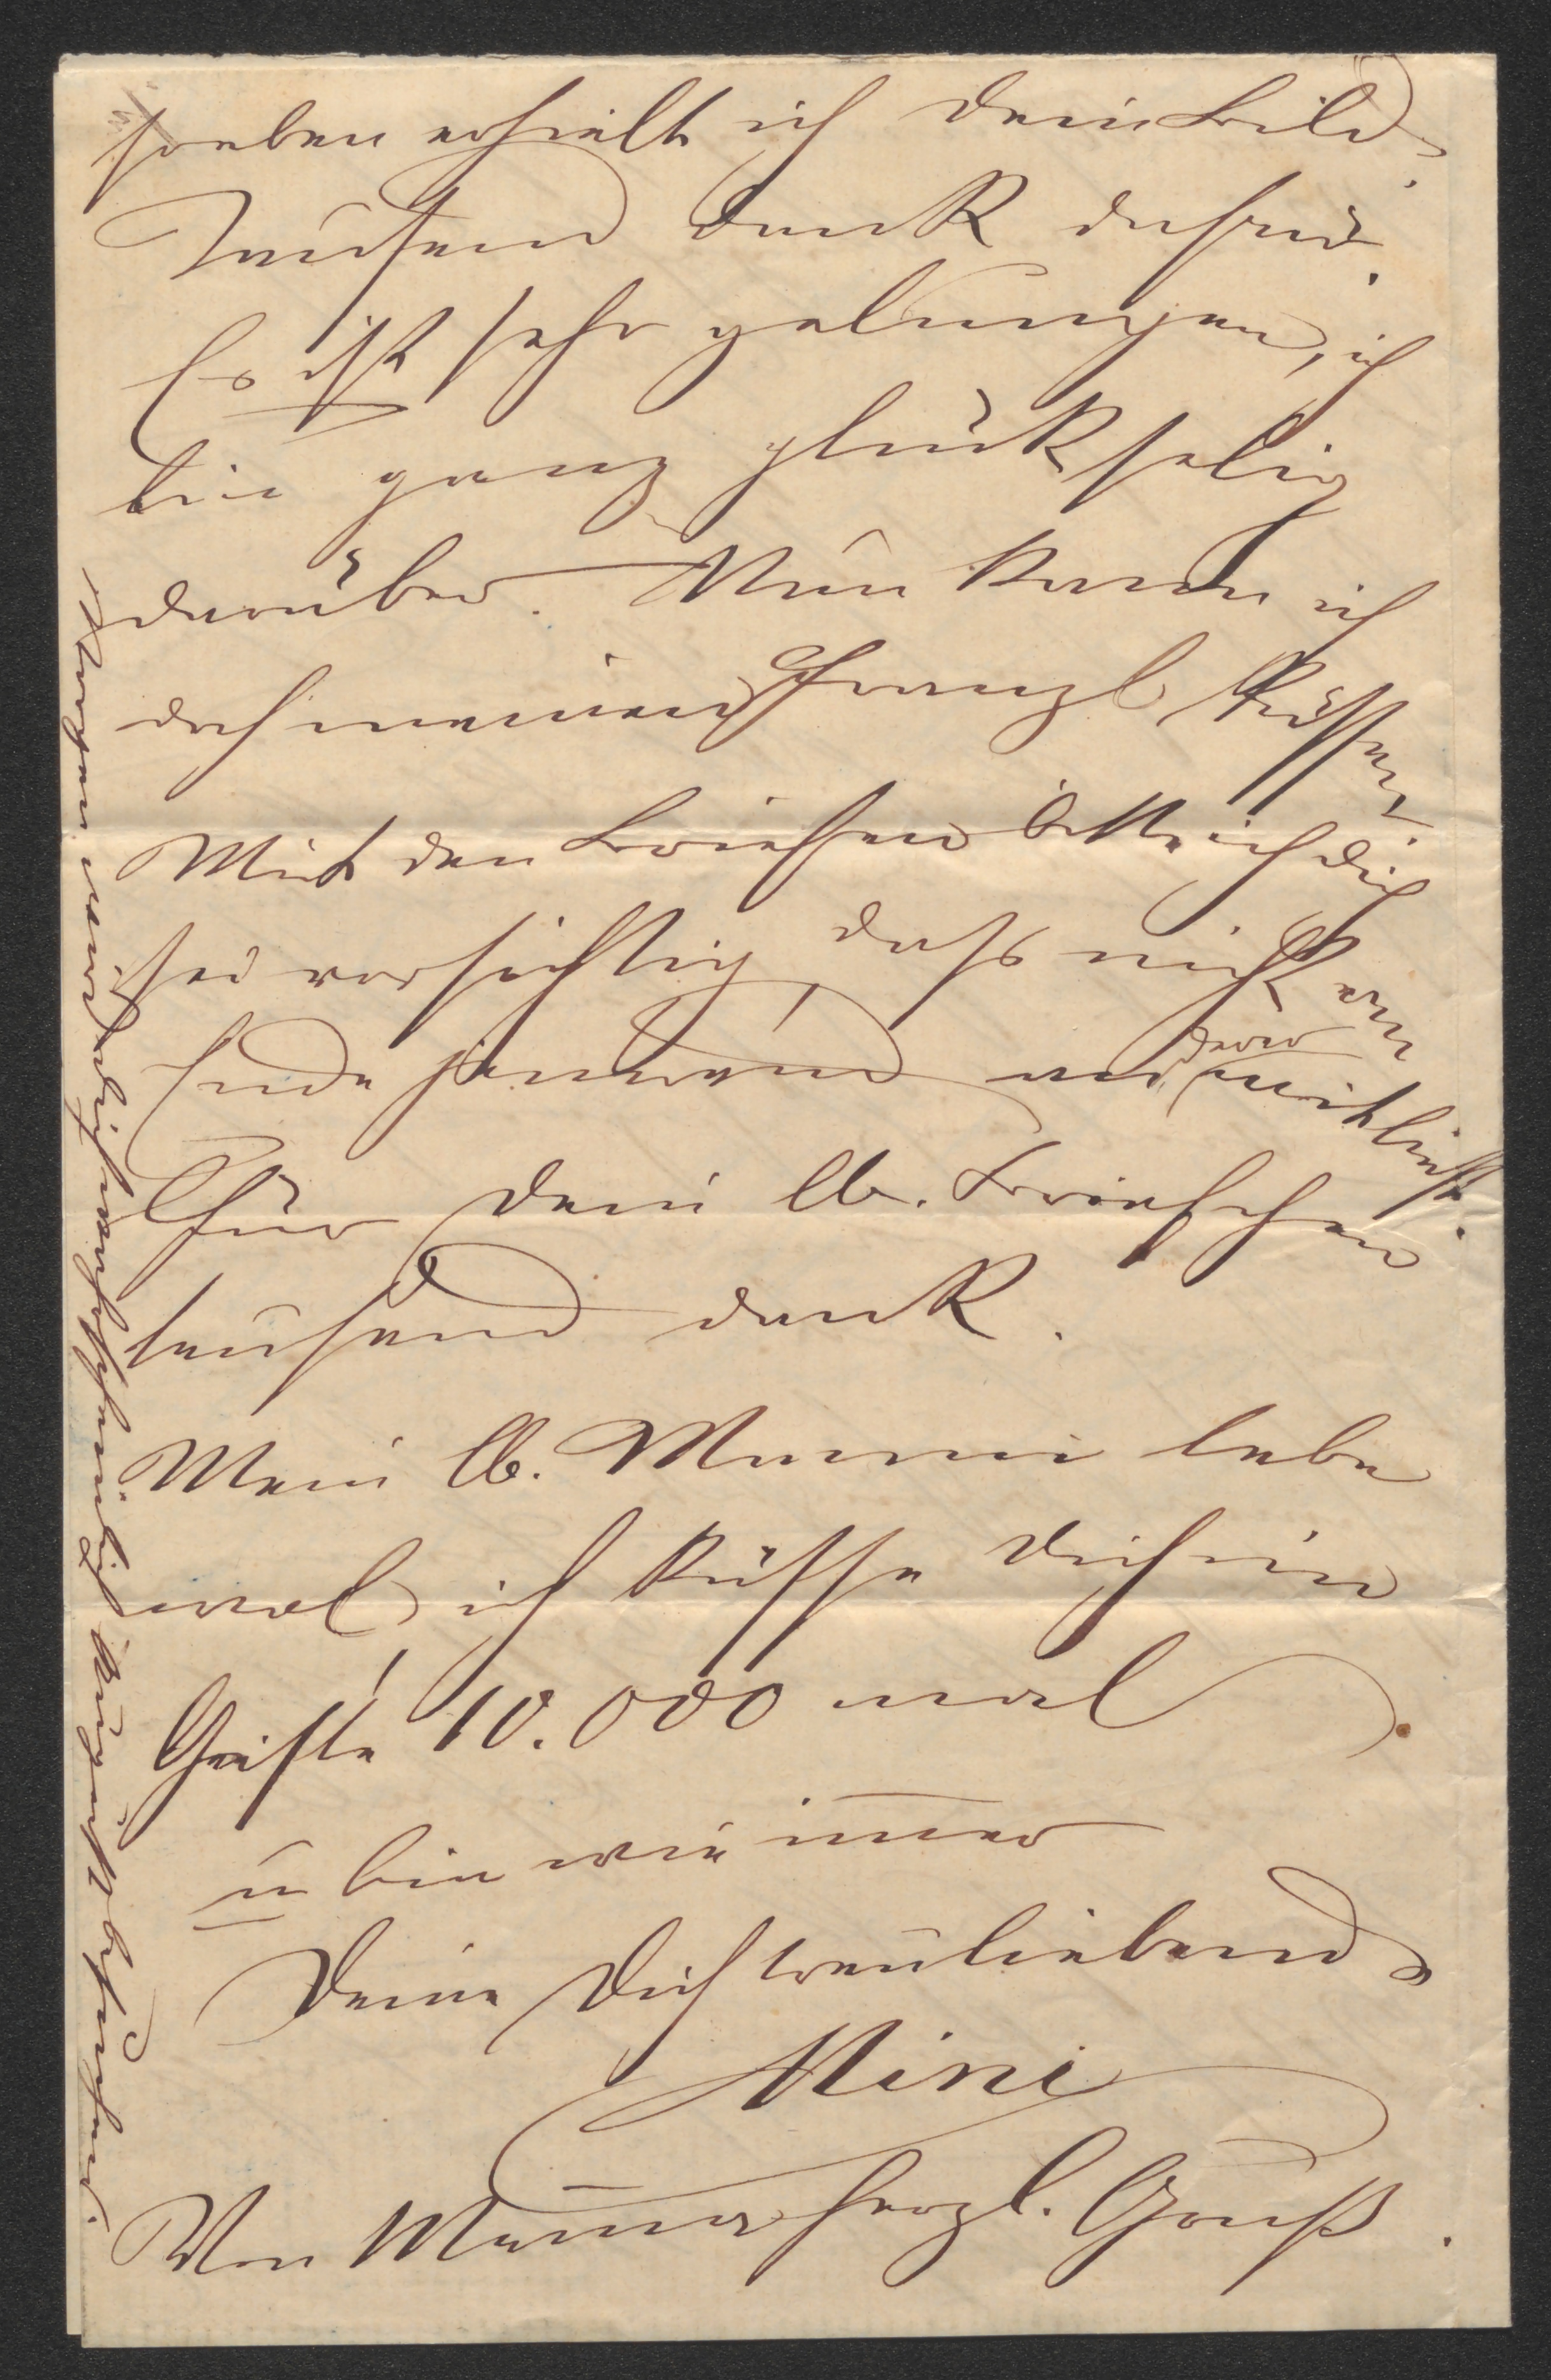 soeben erhielt ich dein Bild,
Tausend dank dafür.
Es ist sehr gelungen, ich
bin ganz glückselig
darüber. Nun kann ich
doch meinen Franzl küssen.
Mit den Briefen bitte ich dich
sei vorsichtig, dass nicht am
Ende jemand anderer mitliest.
Für dein lb. Briefchen
tausend dank.
Mein lb. Mucki lebe
wol, ich küsse dich im
Geiste 10.000 mal
u bin wie immer
Deine Dich treuliebende
Mini
Von Mama herzl. Gruß.
Morgen wird